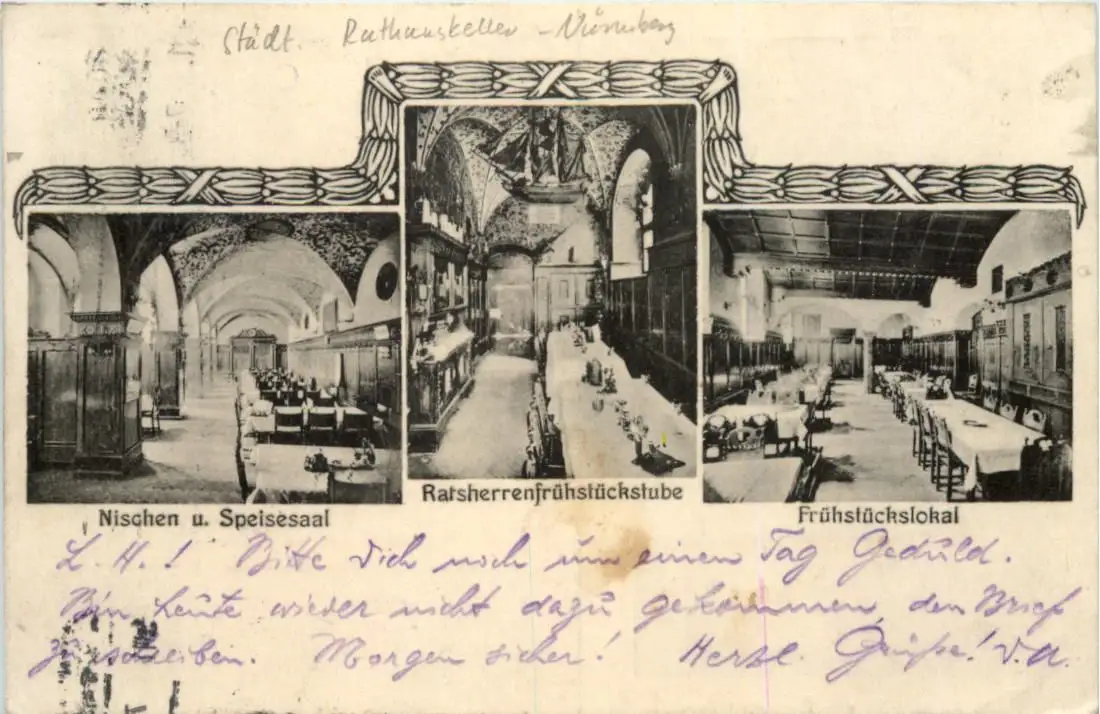 Städt. Rathauskeller - Nürnberg
Ratsherrenfrühstückstube
Nischen u. Speisesaal
Frühstückslokal
L. H.! Bitte Dich noch um einen Tag Geduld.
Bin heute wieder nicht dazu gekommen, den Brief
zu schreiben. Morgen sicher! Herzl. Grüße! D. A.